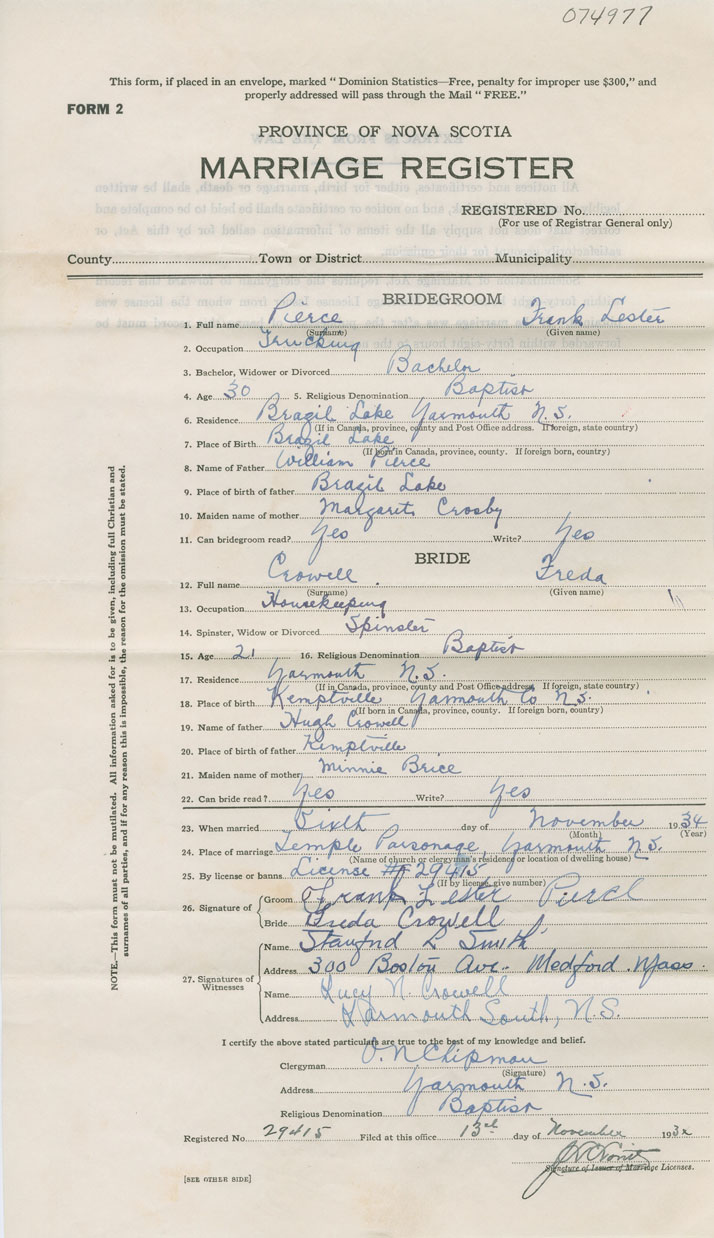 074977
This form, if placed in an envelope, marked “ Dominion Statistics—Free, penalty for improper use $300,” and
properly addressed will pass through the Mail “ FREE.”
FORM 2
PROVINCE OF NOVA SCOTIA
MARRIAGE REGISTER
REGISTERED No.
(For use of Registrar General only)
County Town or District Municipality
BRIDEGROOM
1. Full name Pierce Frank Lester
(Surname) (Given name)
2. Occupation Trucking
3. Bachelor, Widower or Divorced Bachelor
4. Age 30 5. Religious Denomination Baptist
6. Residence Brazil Lake Yarmouth N.S.
(If in Canada, province, county and Post Office address. If foreign, state country)
7. Place of Birth Brazil Lake
(If born in Canada, province, county. If foreign born, country)
8. Name of Father William Pierce
9. Place of birth of father Brazil Lake
10. Maiden name of mother Margaret Crosby
11. Can bridegroom read? Yes Write? Yes
BRIDE
12. Full name Crowell Freda
(Surname) (Given name)
13. Occupation Housekeeping
14. Spinster, Widow or Divorced Spinster
15. Age 21 16. Religious Denomination Baptist
17. Residence Yarmouth N.S.
(If in Canada, province, county and Post Office address. If foreign, state country)
18. Place of birth Kemptville Yarmouth Co N.S.
(If born in Canada, province, county. If foreign born, country)
19. Name of father Hugh Crowell
20. Place of birth of father Kemptville
21. Maiden name of mother Minnie Brice
22. Can bride read? Yes Write? Yes
23. When married Sixth day of November 1934
(Month) (Year)
24. Place of marriage Temple Parsonage, Yarmouth N.S.
(Name of church or clergyman's residence or location of dwelling house)
25. By license or banns License # 29415
(If by license, give number)
26. Signature of Groom Frank Lester Pierce
Bride Freda Crowell
27. Signatures of Witnesses
Name Stanford L Smith
Address 300 Boston Ave. Medford Mass.
Name Lucy N. Crowell
Address Yarmouth South, N.S.
I certify the above stated particulars are true to the best of my knowledge and belief.
Clergyman O. N Chipman
(Signature)
Address Yarmouth N.S.
Religious Denomination Baptist
Registered No. 29415 Filed at this office 13 day of November 193
Signature of Issuer of Marriage Licenses.
[SEE OTHER SIDE]
NOTE.—This form must not be mutilated. All information asked for is to be given, including full Christian and
surnames of all parties, and if for any reason this is impossible, the reason for the omission must be stated.